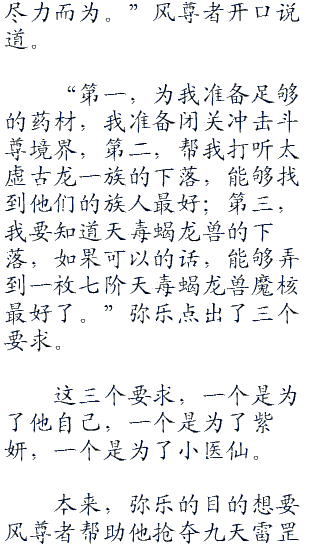 尽力而为。”风尊者开口说
道。
“第一，为我准备足够
的药材，我准备闭关冲击斗
尊境界，第二，帮我打听太
虚古龙一族的下落，能够找
到他们的族人最好；第三，
我要知道天毒蝎龙兽的下
落，如果可以的话，能够弄
到一枚七阶天毒蝎龙兽魔核
最好了。”弥乐点出了三个
要求。
这三个要求，一个是为
了他自己，一个是为了紫
妍，一个是为了小医仙。
本来，弥乐的目的想要
风尊者帮助他抢夺九天雷罡